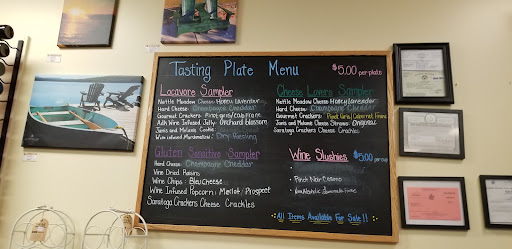 Tasting Plate Menu
$5.00 per plate
Locavore Sampler
Nettle Meadow Cheese: Honey Lavender
Hard Cheese: Champagne Cheddar
Gourmet Crackers:
Adk Wine Infused Jelly: Orchard Blossom
Janis and Melanie Cookie:
Wine Infused Marshmallow: Dry Riesling
Gluten Sensitive Sampler
Hard Cheese: Champagne Cheddar
Vine Dried Raisins
Wine Chips: Bleu Cheese
Wine Infused Popcorn: Merlot / Prospect
Saratoga Crackers Cheese Crackles
Cheese Lovers Sampler
Nettle Meadow Cheese: Honey Lavender
Hard Cheese: Champagne Cheddar
Gourmet Crackers:
Janis and Melanie Cheese Straws: Original
Saratoga Crackers Cheese Crackles
Wine Slushies $5.00 per cup
All Items Available For Sale!!